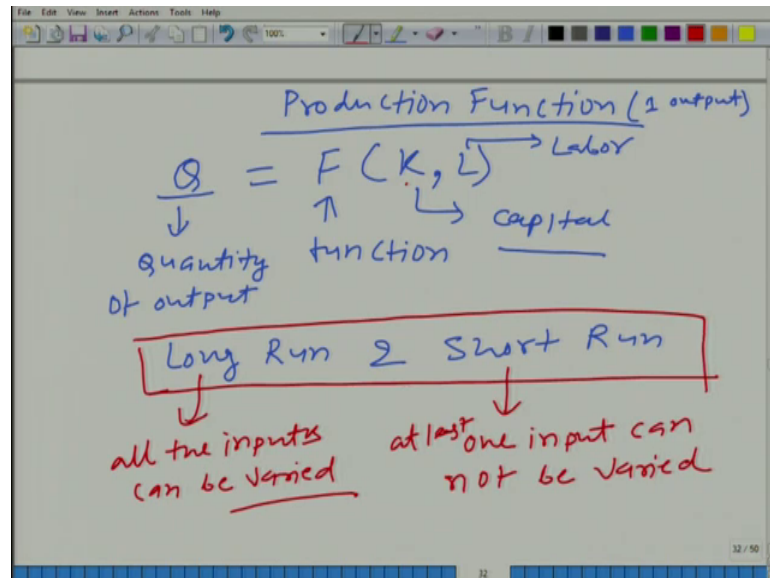 File Edit View Insert Actions Tools Help
100%
B I
Production Function (1 output)
Q = F (K, L) Labor
Capital
Quantity function
of output
Long Run & Short Run
all the inputs at last one input can
can be varied not be varied
32 / 50
32